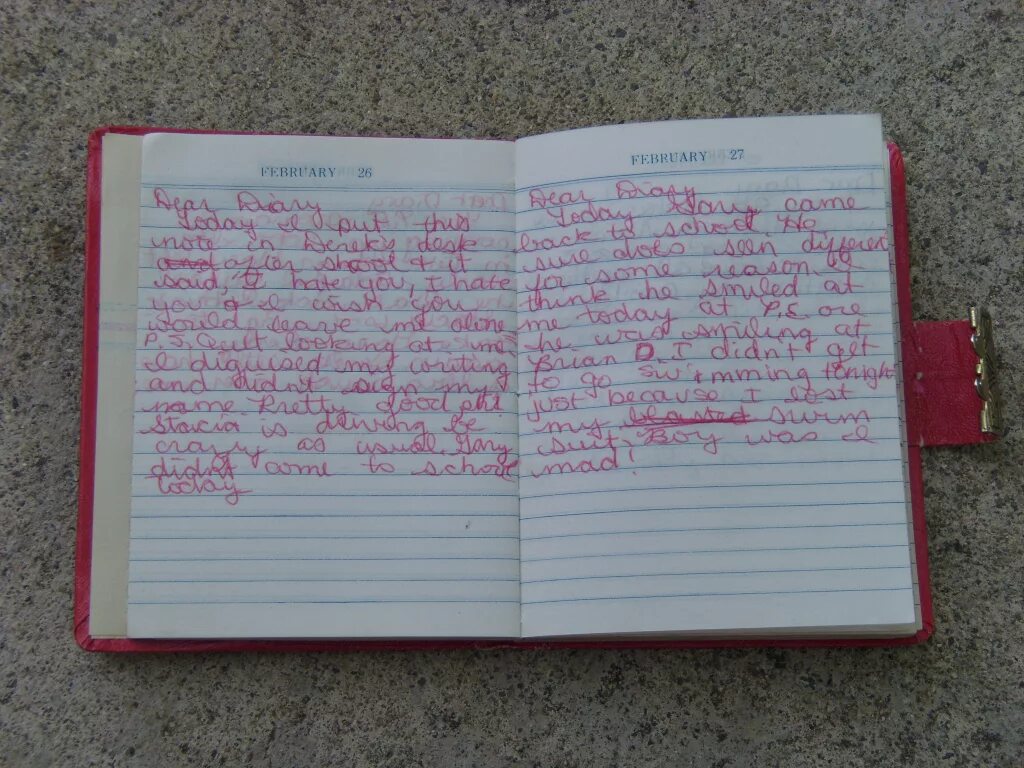 FEBRUARY 26
Dear Diary
Today I put this
note in Derek's desk
and after shcool & it
said, "I hate you, I hate
you & I wish you
would leave me alone
P.S. Quit looking at me
I diguised my writing
and didn't sign my
name. Pretty good
Stacia is driving
crazy as usual. Gary
didn't come to school
today
FEBRUARY 27
Dear Diary
Today Gary came
back to school. He
sure does seen different
for some reason. I
think he smiled at
me today at P.E. ore
he was smiling at
Brian D. I didn't get
to go swimming tonight
just because I lost
my blasted swim
suit! Boy was I
mad!